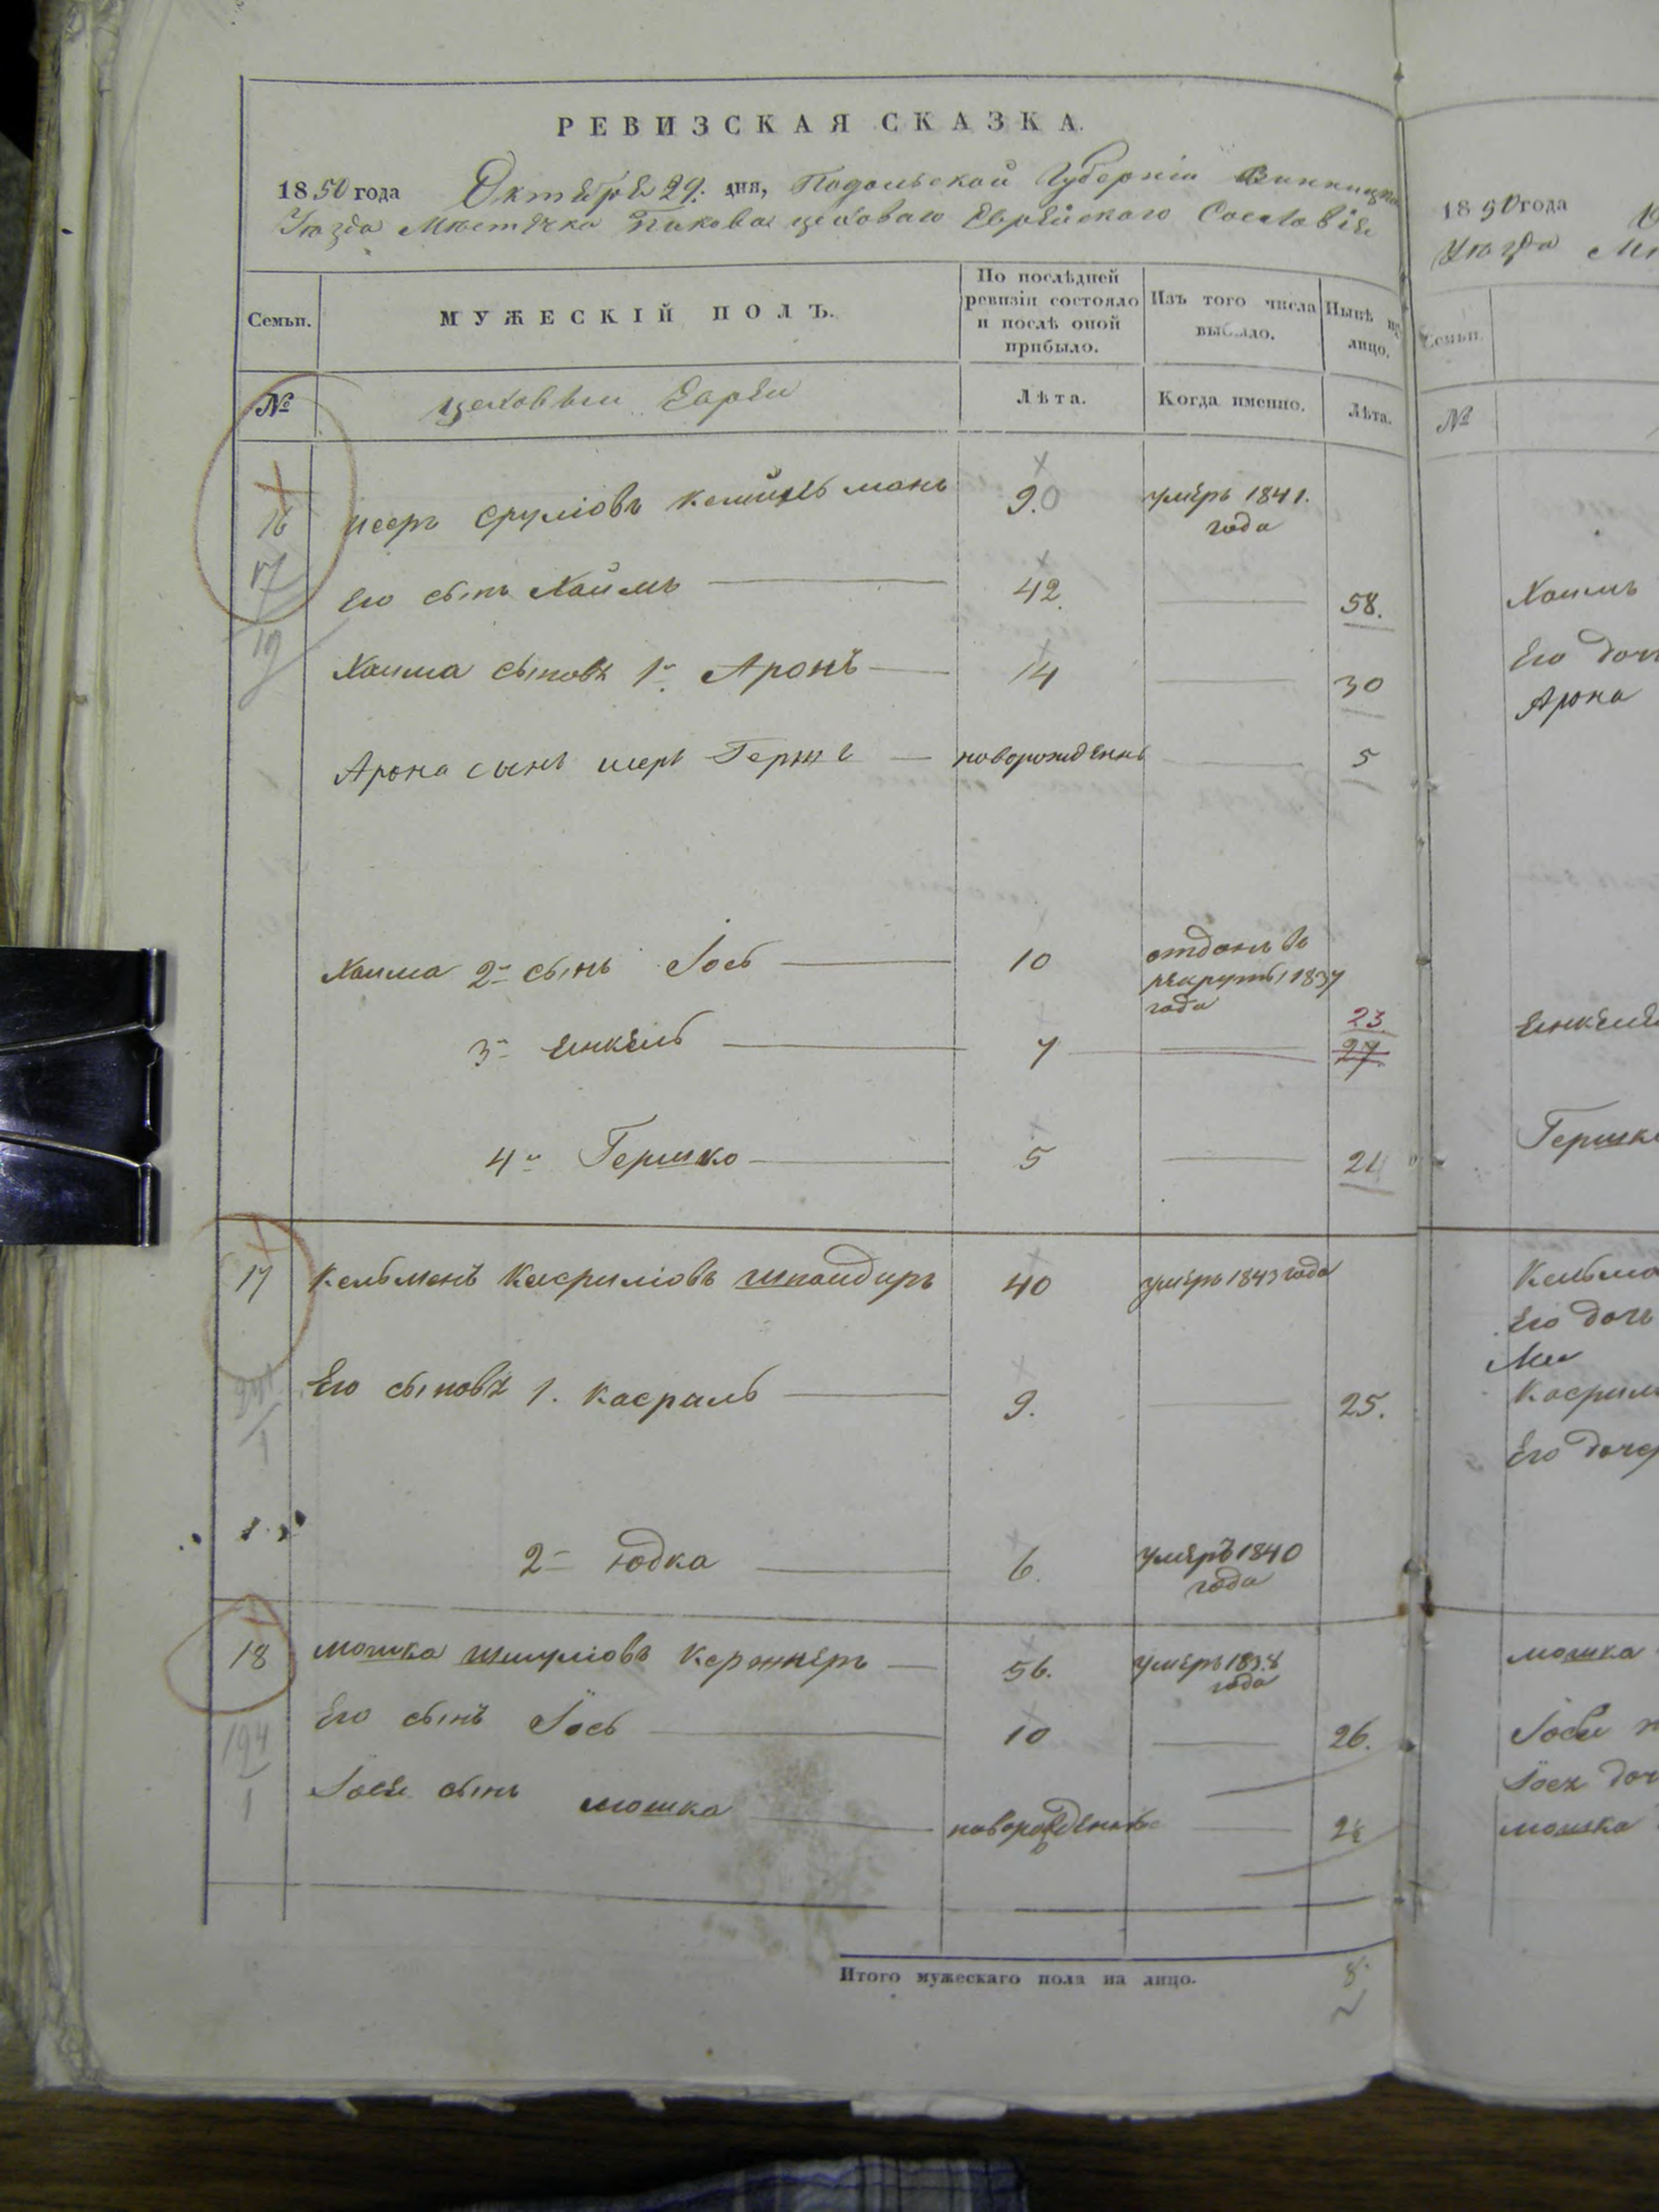 РЕВИЗСКАЯ СКАЗКА.
1850 года Октября 29. дня, Подольской Губерніи Винницк
Уѣзда Мѣстечка Пикова цеховаго Еврейскаго Сословія
Семьи. МУЖЕСКІЙ ПОЛЪ. По послѣдней ревизіи состояло и послѣ оной прибыло. Изъ того числа выбыло. Нынѣ на лицо.
№ цеховыи Евреи Лѣта. Когда именно. Лѣта.
16 Сруліовъ 90 умеръ 1841. года
17 Его сынъ Хаимъ 42. 58.
19 Хаима сыновя 1й Аронъ 14 30
Арона сынъ новорожденъ 5
Хаима 2й сынъ Іось 10 отданъ въ рекруты 1837 года
3й Янкель 7 23. 27
4й Гершко 5 21
17 Кельменъ Касриліовъ шпандиръ 40 умеръ 1843 года
Его сыновя 1. Касриль 9. 25.
2й Юдка 6. умеръ 1840 года
18 Мошка Шмуліовъ 56. умеръ 1838 года
194 Его сынъ Іось 10 26.
1 Іося сынъ Мошка новорожденный 2½
Итого мужескаго пола на лицо. 8
1850 года
Уѣзда М
Семьи.
№
Хаимъ
Его доч
Арона
Янкеля
Гершк
Кельма
Его доч
Касрил
Его дочер
Мошка
Іося
Іося доч
Мошка